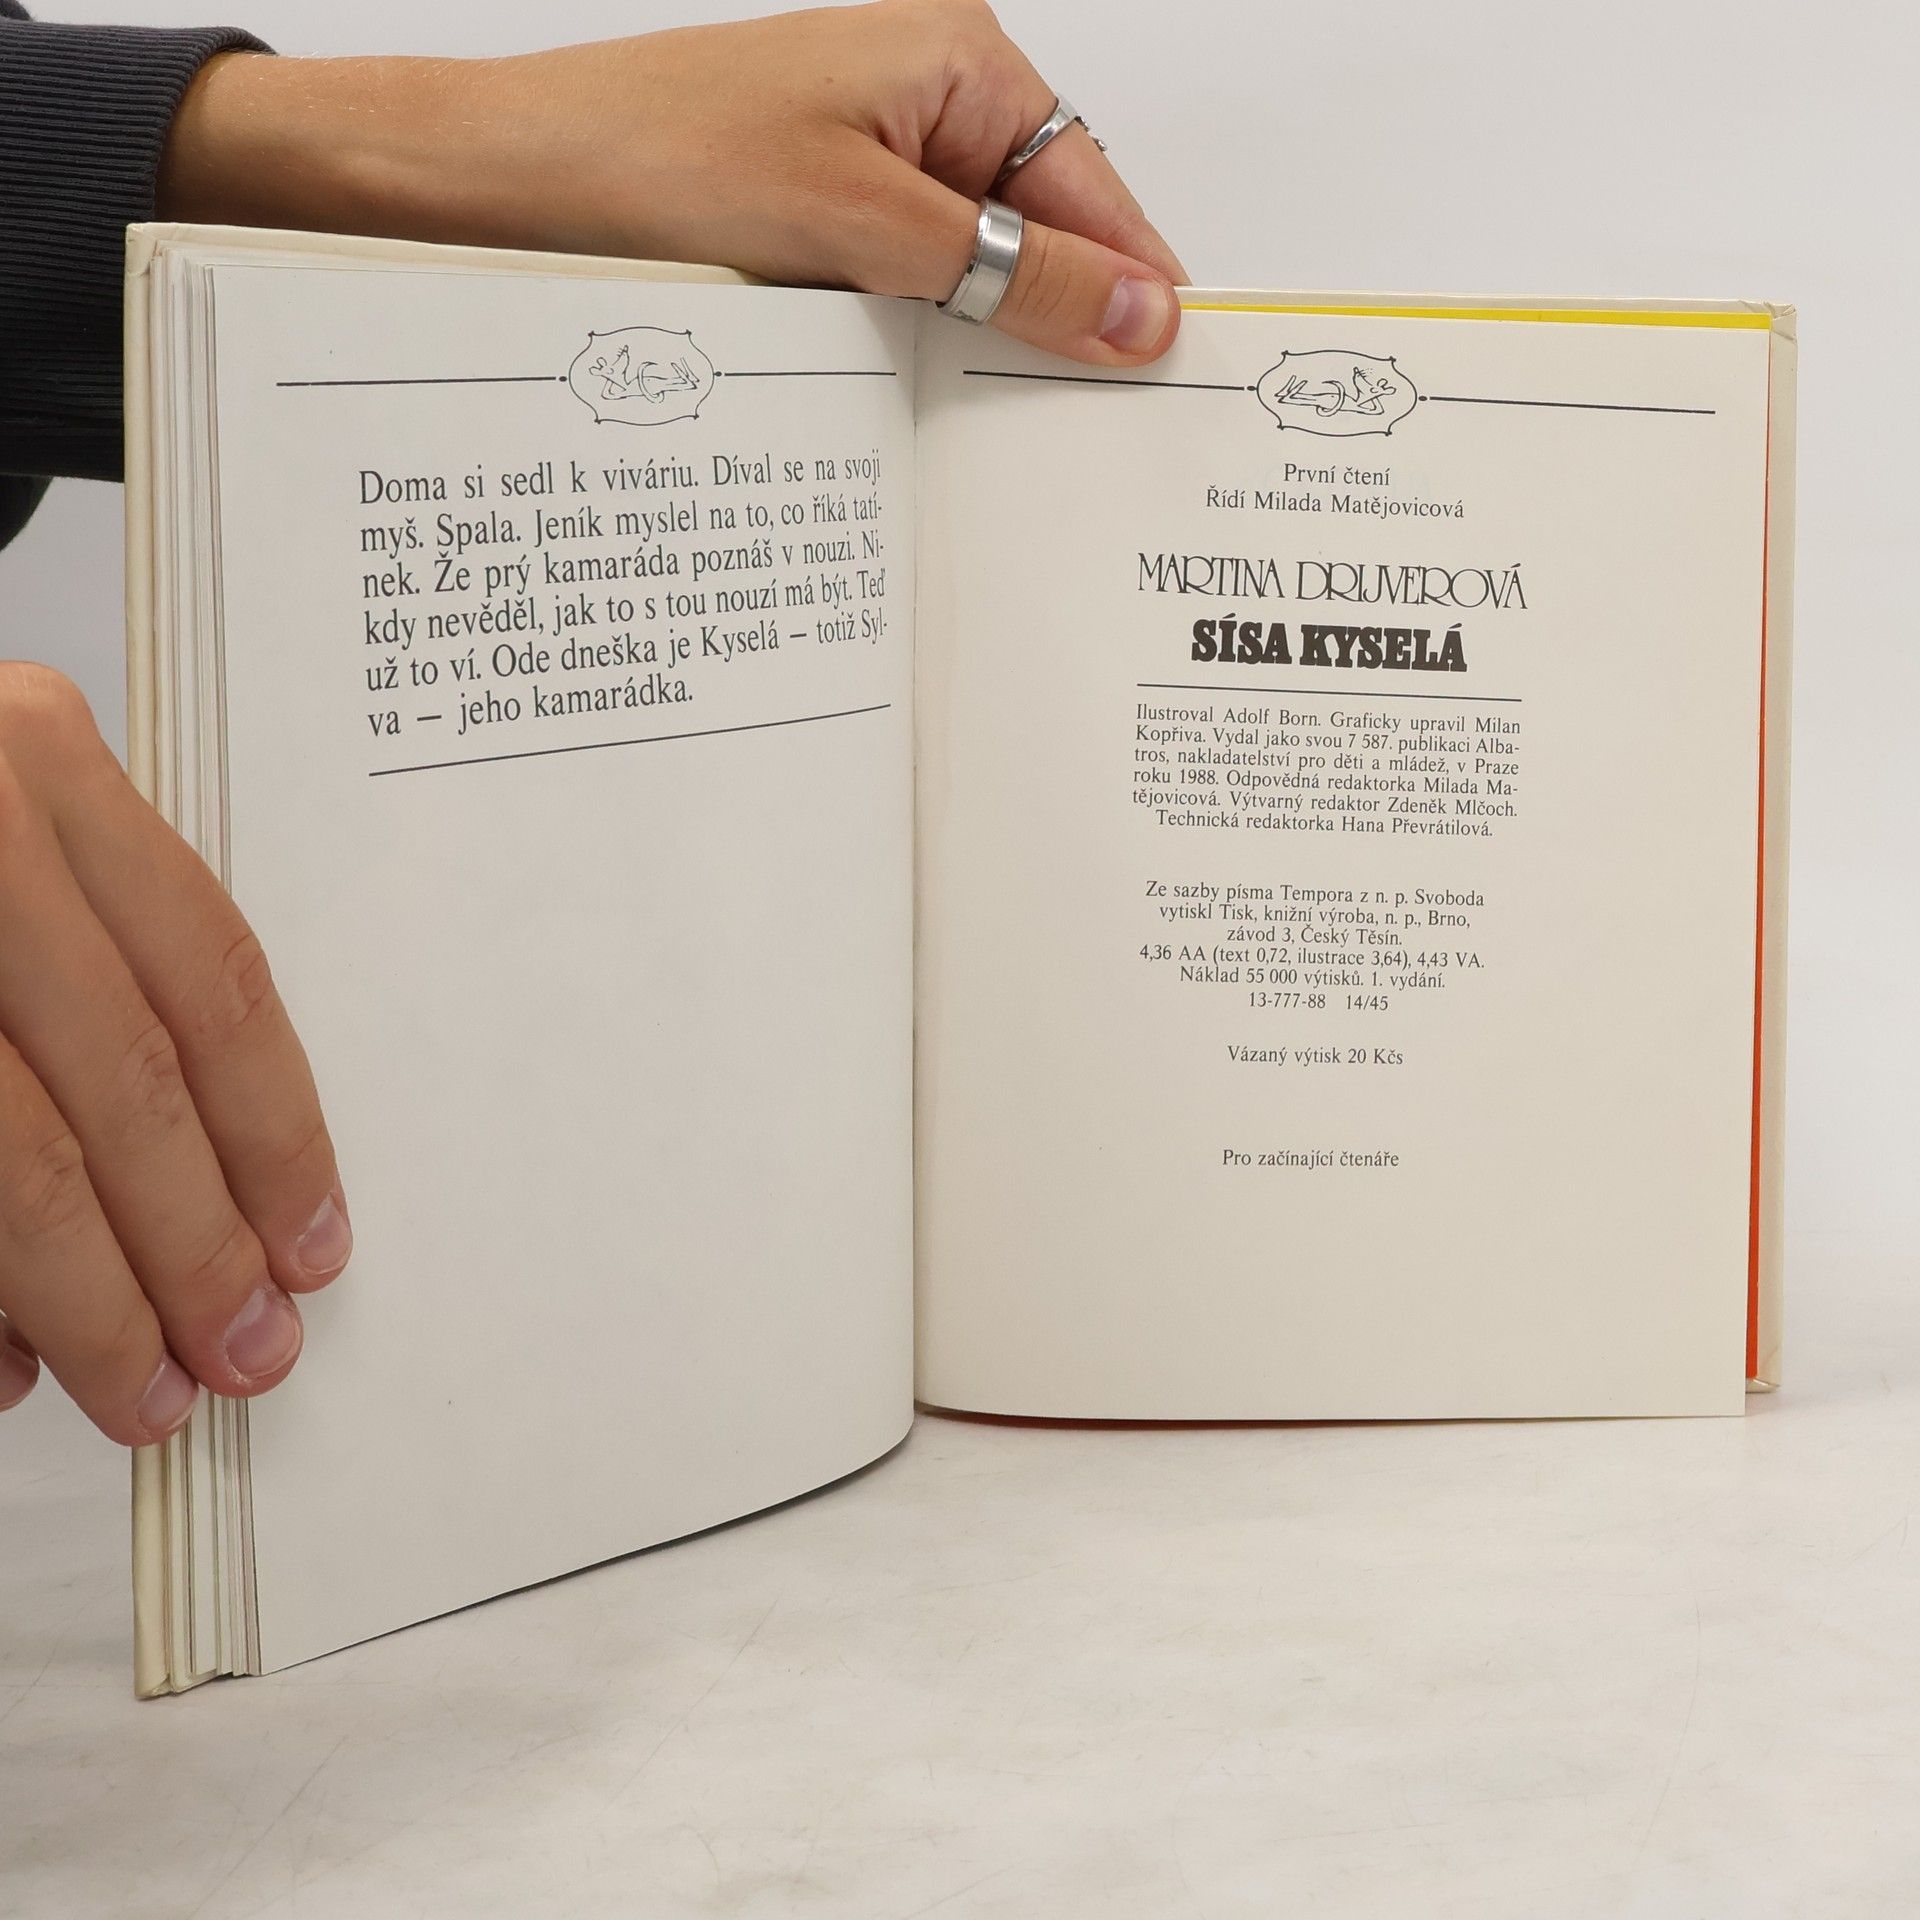 Doma si sedl k viváriu. Díval se na svoji
myš. Spala. Jeník myslel na to, co říká tatí-
nek. Že prý kamaráda poznáš v nouzi. Ni-
kdy nevěděl, jak to s tou nouzí má být. Teď
už to ví. Ode dneška je Kyselá – totiž Syl-
va – jeho kamarádka.
První čtení
Řídí Milada Matějovicová
MARTINA DRIJVEROVÁ
SÍSA KYSELÁ
Ilustroval Adolf Born. Graficky upravil Milan
Kopřiva. Vydal jako svou 7 587. publikaci Alba-
tros, nakladatelství pro děti a mládež, v Praze
roku 1988. Odpovědná redaktorka Milada Ma-
tějovicová. Výtvarný redaktor Zdeněk Mlčoch.
Technická redaktorka Hana Převrátilová.
Ze sazby písma Tempora z n. p. Svoboda
vytiskl Tisk, knižní výroba, n. p., Brno,
závod 3, Český Těsín.
4,36 AA (text 0,72, ilustrace 3,64), 4,43 VA.
Náklad 55 000 výtisků. 1. vydání.
13-777-88 14/45
Vázaný výtisk 20 Kčs
Pro začínající čtenáře